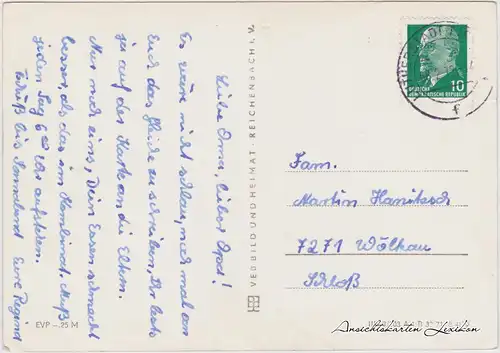 Liebe Oma, lieber Opa!
Es wäre nicht schlau, noch mal an
Euch das Gleiche zu schreiben, Ihr lest
ja auf der Karte an die Eltern.
Nur noch eins, Dein Essen schmeckt
besser, als das im Kombinat. Muß
jeden Tag 6⁰⁰ Uhr aufstehen.
Gruß bis Sonnabend Eure
EVP –.25 M
VEB BILD UND HEIMAT REICHENBACH i. V.
10
DEUTSCHE
DEMOKRATISCHE REPUBLIK
f
Fam.
Martin Hanitzsch
7271 Wölkau
Schloß
Ansichtskarten
Lexikon